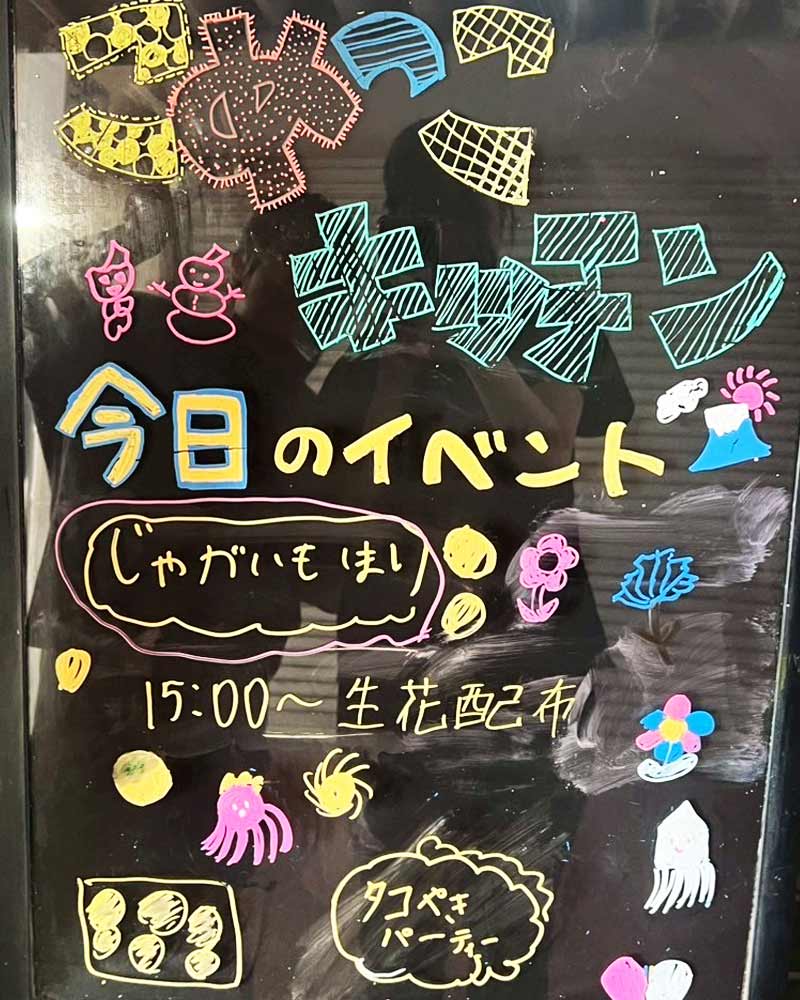 キッチン
今日のイベント
じゃがいもほり
15:00～生花配布
タコやき
パーティー